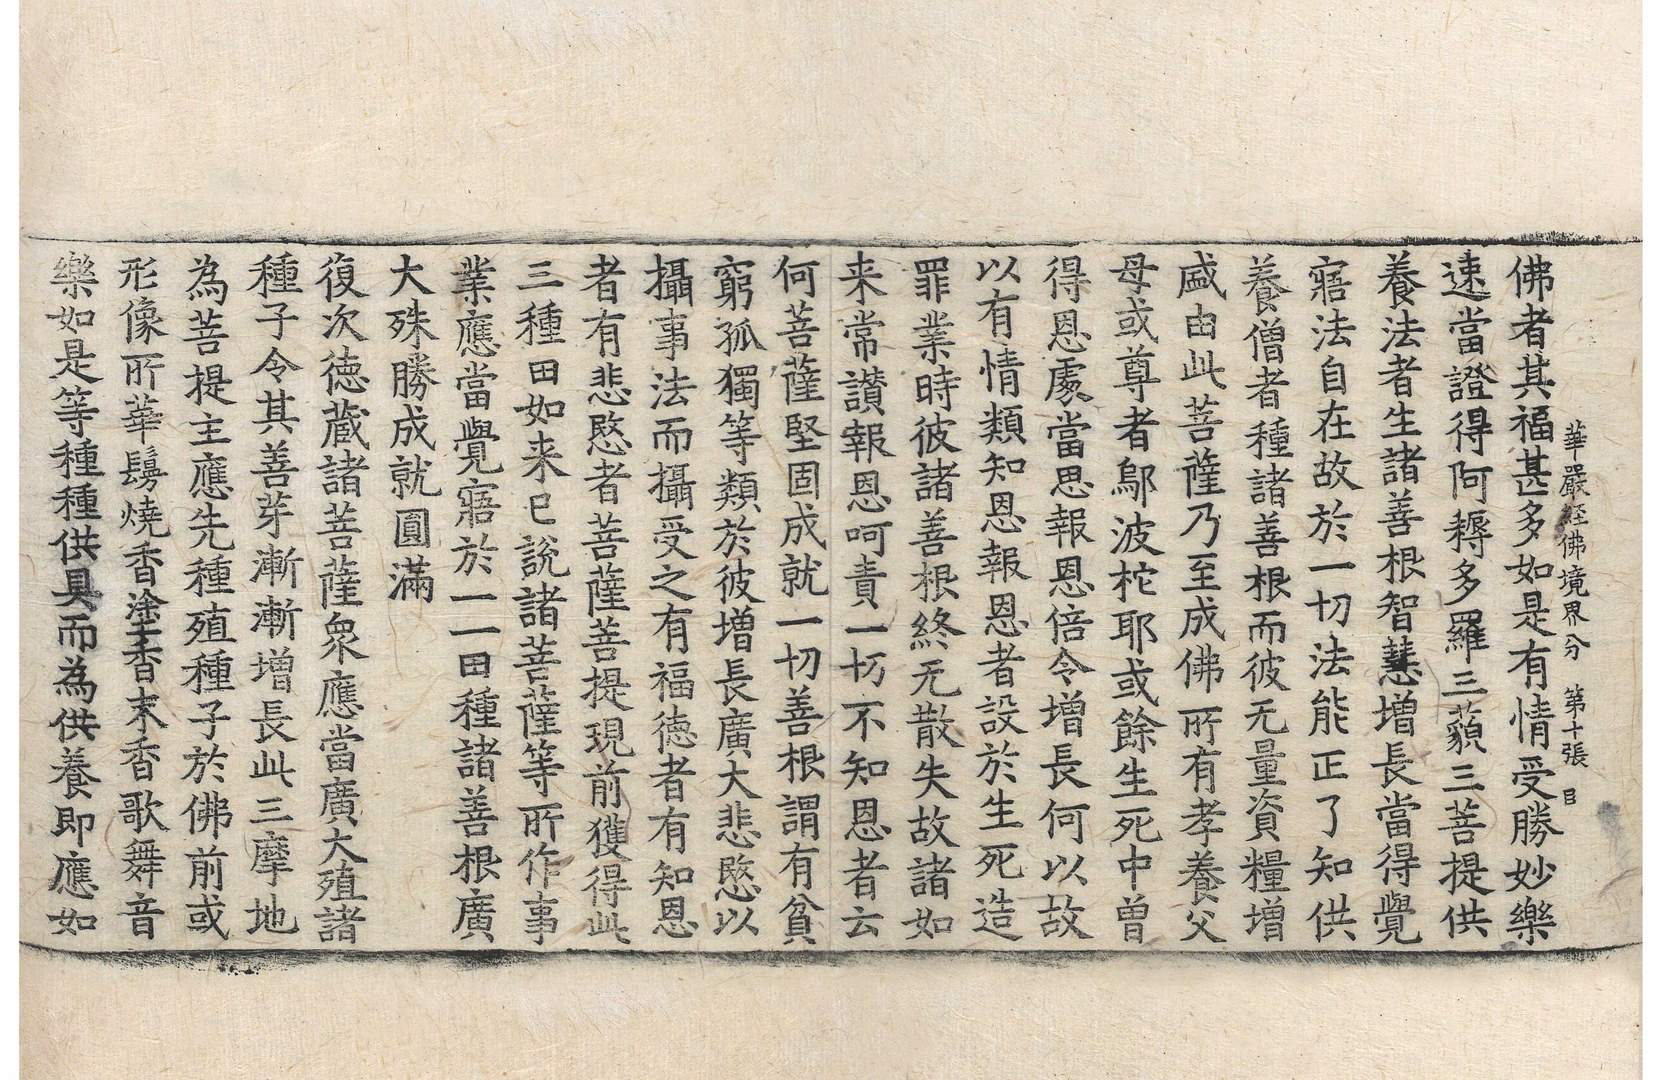 華嚴經佛境界分　第十張　目
佛者其福甚多如是有情受勝妙樂
速當證得阿耨多羅三藐三菩提供
養法者生諸善根智慧增長當得覺
寤法自在故於一切法能正了知供
養僧者種諸善根而彼无量資糧增
盛由此菩薩乃至成佛所有孝養父
母或尊者鄔波柁耶或餘生死中曾
得恩處當思報恩倍令增長何以故
以有情類知恩報恩者設於生死造
罪業時彼諸善根終无散失故諸如
来常讃報恩呵責一切不知恩者云
何菩薩堅固成就一切善根謂有貧
窮孤獨等類於彼增長廣大悲愍以
攝事法而攝受之有福德者有知恩
者有悲愍者菩薩菩提現前獲得此
三種田如来已說諸菩薩等所作事
業應當覺寤於一一田種諸善根廣
大殊勝成就圓滿
復次德藏諸菩薩衆應當廣大殖諸
種子令其善芽漸漸增長此三摩地
為菩提主應先種殖種子於佛前或
形像所華鬘燒香塗香末香歌舞音
樂如是等種種供具而為供養即應如